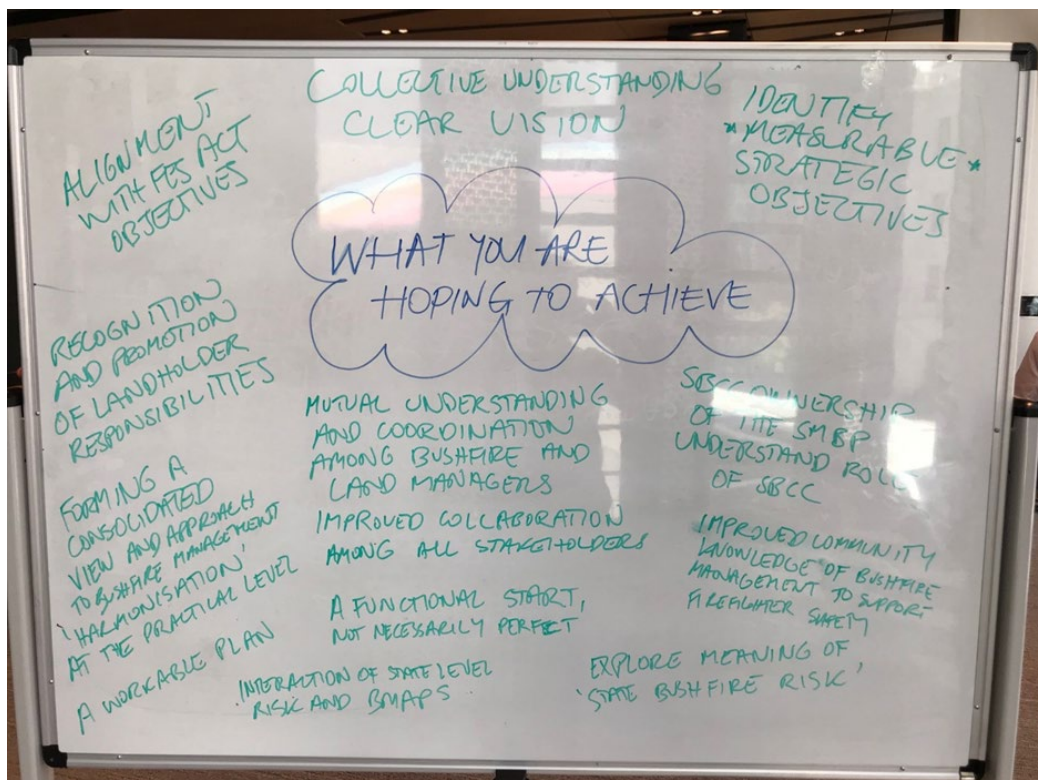 COLLECTIVE UNDERSTANDING
CLEAR VISION
ALIGNMENT
WITH FES ACT
OBJECTIVES
IDENTIFY
*MEASURABLE*
STRATEGIC
OBJECTIVES
WHAT YOU ARE
HOPING TO ACHIEVE
RECOGNITION
AND PROMOTION
OF LANDHOLDER
RESPONSIBILITIES
FORMING A
CONSOLIDATED
VIEW AND APPROACH
TO BUSHFIRE MANAGEMENT
'HARMONISATION'
AT THE PRACTICAL LEVEL
A WORKABLE PLAN
MUTUAL UNDERSTANDING
AND COORDINATION
AMONG BUSHFIRE AND
LAND MANAGERS
IMPROVED COLLABORATION
AMONG ALL STAKEHOLDERS
A FUNCTIONAL START,
NOT NECESSARILY PERFECT
INTERACTION OF STATE LEVEL
RISK AND BMAPS
SBCC OWNERSHIP
OF THE SMBP
UNDERSTAND ROLE
OF SBCC
IMPROVED COMMUNITY
KNOWLEDGE OF BUSHFIRE
MANAGEMENT TO SUPPORT
FIREFIGHTER SAFETY
EXPLORE MEANING OF
'STATE BUSHFIRE RISK'